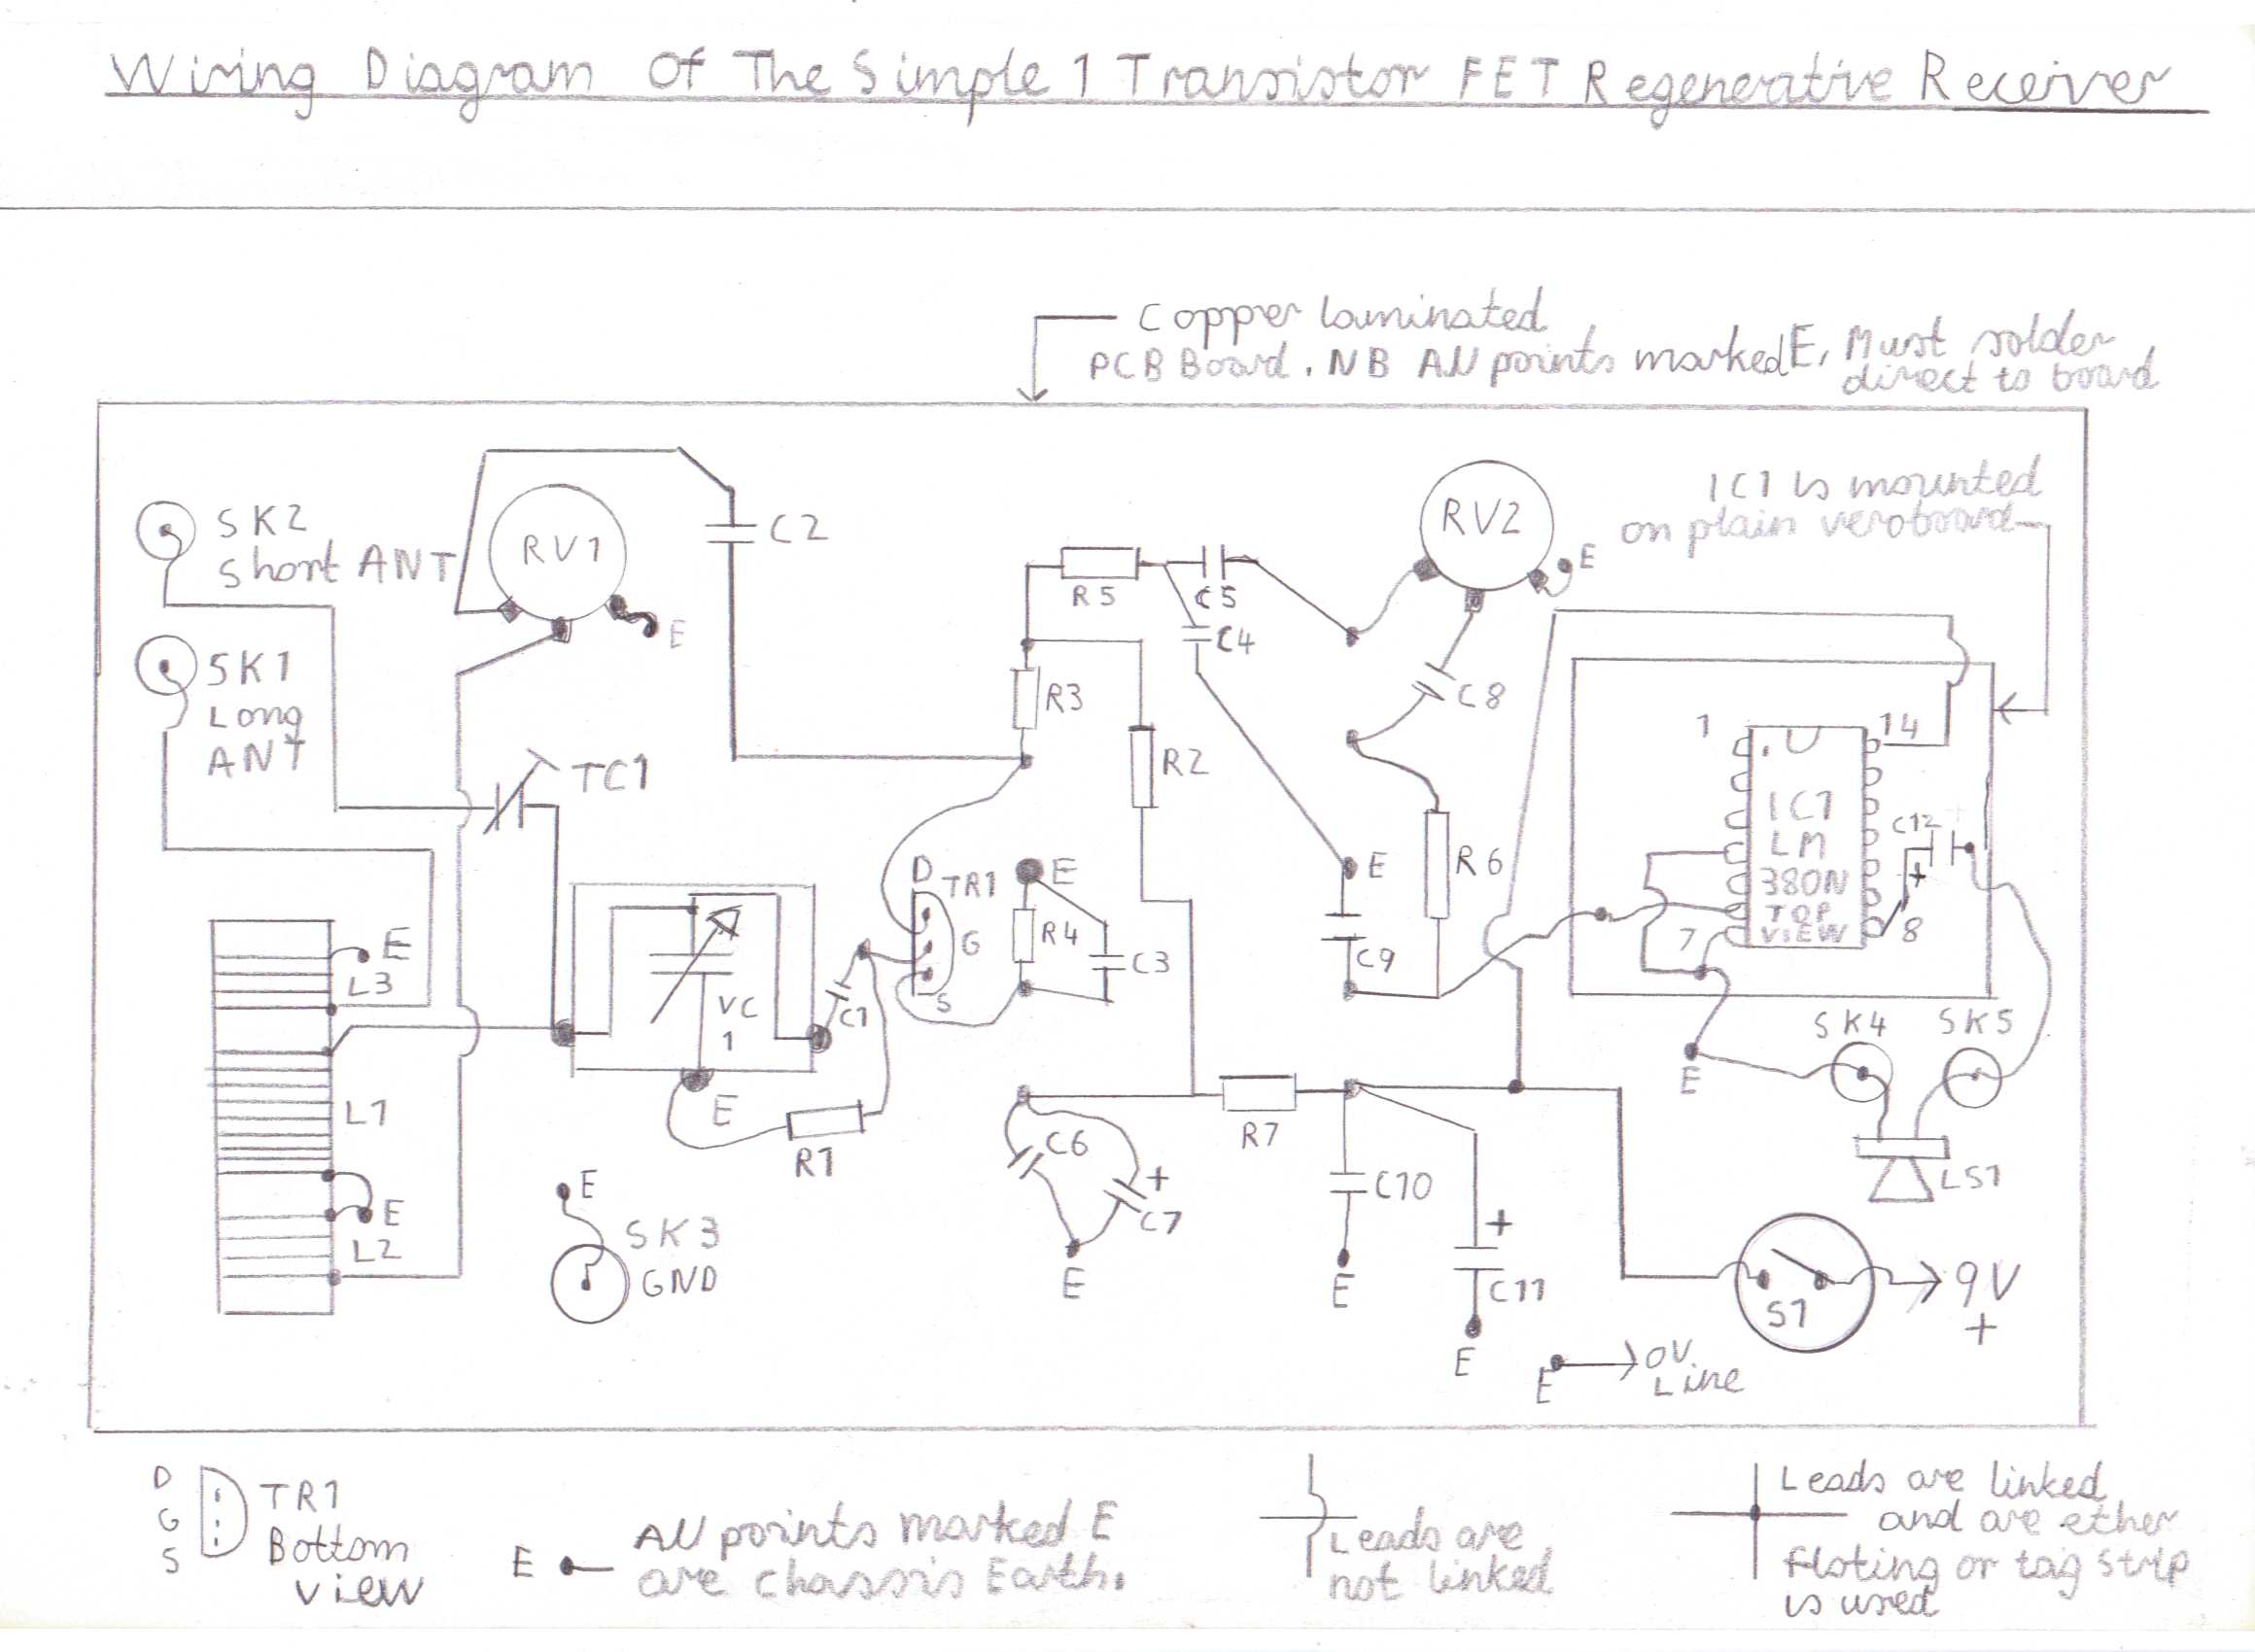 Wiring Diagram Of The Simple 1 Transistor FET Regenerative Receiver
Copper laminated
PCB Board. NB All points marked E, Must solder
direct to board
IC1 is mounted
on plain veroboard
SK2
Short ANT
RV1
E
C2
RV2
E
R5
C5
C4
SK1
Long
ANT
TC1
R3
R2
C8
1
14
IC1
LM
380N
TOP
VIEW
7
8
C12
+
D
TR1
G
S
E
R4
C3
E
C9
R6
E
L3
VC
1
C1
E
R1
L1
E
L2
E
SK3
GND
C6
+
C7
E
R7
C10
E
+
C11
E
SK4
SK5
E
LS1
S1
9V
+
E
0V
Line
D
G
S
TR1
Bottom
view
E
All points marked E
are chassis Earth.
Leads are
not linked
Leads are linked
and are ether
floting or tag strip
is used